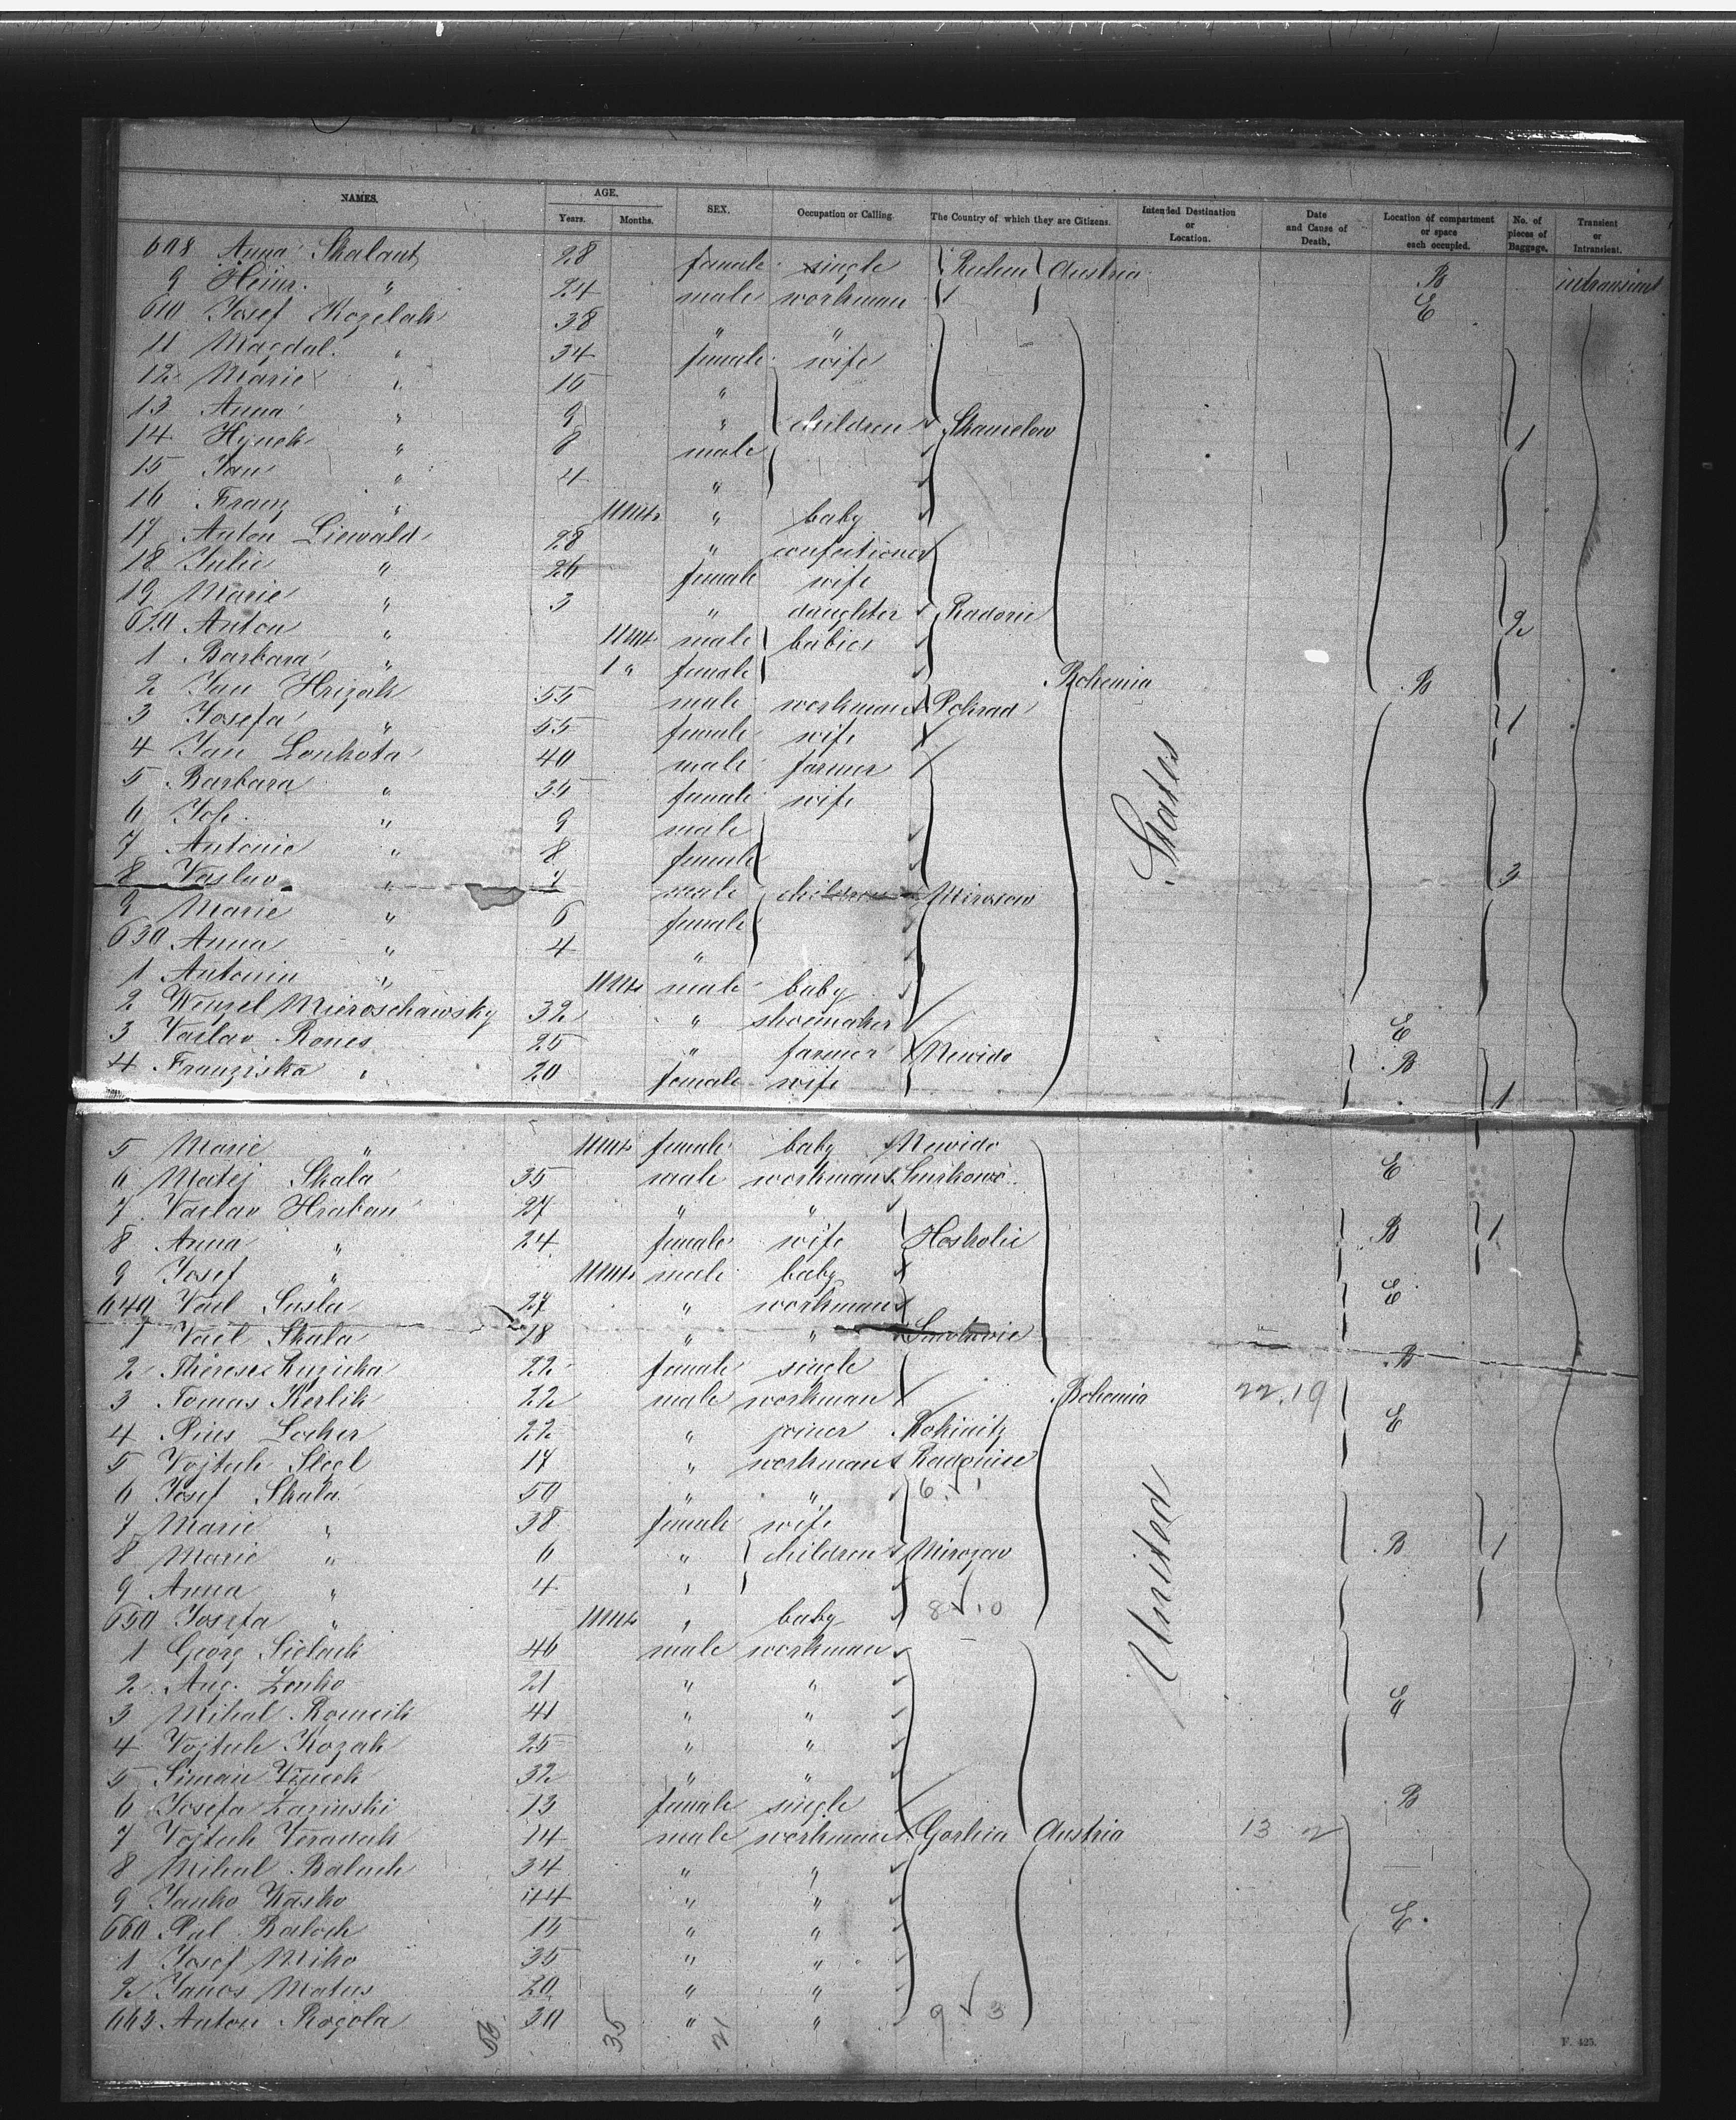 NAMES. AGE. Years. Months. SEX. Occupation or Calling. The Country of which they are Citizens. Intended Destination or Location. Date and Cause of Death. Location of compartment or space each occupied. No. of pieces of Baggage. Transient or Intransient.
608 Anna Skalant 28 female single Austria B intransient
9 Heinr. " 24 male workman E
610 Josef Kozelak 38 " "
11 Magdal. " 34 female wife
12 Marie " 15 "
13 Anna " 9 " children
14 Hynek " 8 male 1
15 Jan " 4 "
16 Franz " " baby
17 Anton Liewald 28 " confectioner
18 Julie " 26 female wife
19 Marie " 3 " daughter Radonie
620 Anton " male babies 2
1 Barbara " 1 " female Bohemia
2 Jan Hrizak 55 male workman Pokrad B
3 Josefa " 55 female wife 1
4 Jan Lonkota 40 male farmer
5 Barbara " 35 female wife States
6 Joh. " 9 male
7 Antonie " 8 female
8 Vaslav " 7 male children Mirosow 3
9 Marie " 6 female
630 Anna " 4 "
1 Antonin " male baby
2 Wenzel Mieroschawsky 32 " shoemaker
3 Vaclav Rones 25 " farmer Mewido E
4 Franziska " 20 female wife B 1
5 Marie " female baby Mewido
6 Matej Skala 35 male workman E
7 Vaclav Hraban 27 " "
8 Anna " 24 female wife Hoskolic B 1
9 Josef " male baby
640 Vacl Susla 27 " workman E
1 Vacl Skala 18 " "
2 Therese Ruzicka 22 female single B
3 Tomas Kerlik 22 male workman Bohemia 22.19
4 Pius Locher 22 " joiner Rokinitz E
5 Vojtech 17 " workman
6 Josef Skala 50 " " 6 1
7 Marie " 38 female wife
8 Marie " 6 " children Mirozow B 1
9 Anna " 4 " United
650 Josefa " " baby 8 10
1 Georg Sidlack 46 male workman
2 Aug. Zenko 21 " "
3 Mihal Romcik 41 " " E
4 Vojtech Kozak 25 " "
5 Siman 32 " "
6 Josefa Lazinski 13 female single B
7 Vojtech 14 male workman Gorlica Austria 13 2
8 Mihal Baluch 34 " "
9 Janko Wasko 44 " "
660 Pal Baloch 15 " " E
1 Josef Miko 35 " "
2 Janos Matus 20 " "
663 Anton Rogola 30 " " 9 3
56 35 21
F. 425.